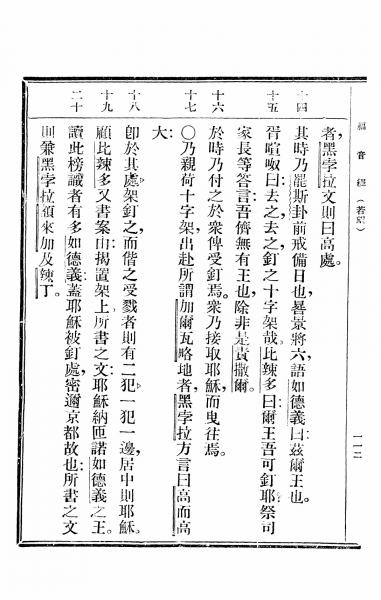 福音經（若望） 一一二
者，黑孛拉文則曰高處。
十四 其時乃罷斯卦前戒備日也，晷景將六，語如德義曰：茲爾王也。
十五 胥喧呶曰：去之，去之，釘之十字架哉。比辣多曰：爾王吾可釘耶。祭司
家長等答言：吾儕無有王也，除非是責撒爾。
十六 於時乃付之於衆俾受釘焉。衆乃接取耶穌，而曳往焉。
十七 ○乃親荷十字架，出赴所謂加爾瓦略地者，黑孛拉方言曰高而高
大：
十八 卽於其處架釘之，而偕之受戮者則有二犯，一犯一邊，居中則耶穌。
十九 顧比辣多又書案由，揭置架上，所書之文：耶穌納匝諾如德義之王。
二十 讀此榜識者有多如德義，蓋耶穌被釘處，密邇京都故也；所書之文
則兼黑孛拉額來加及辣丁。